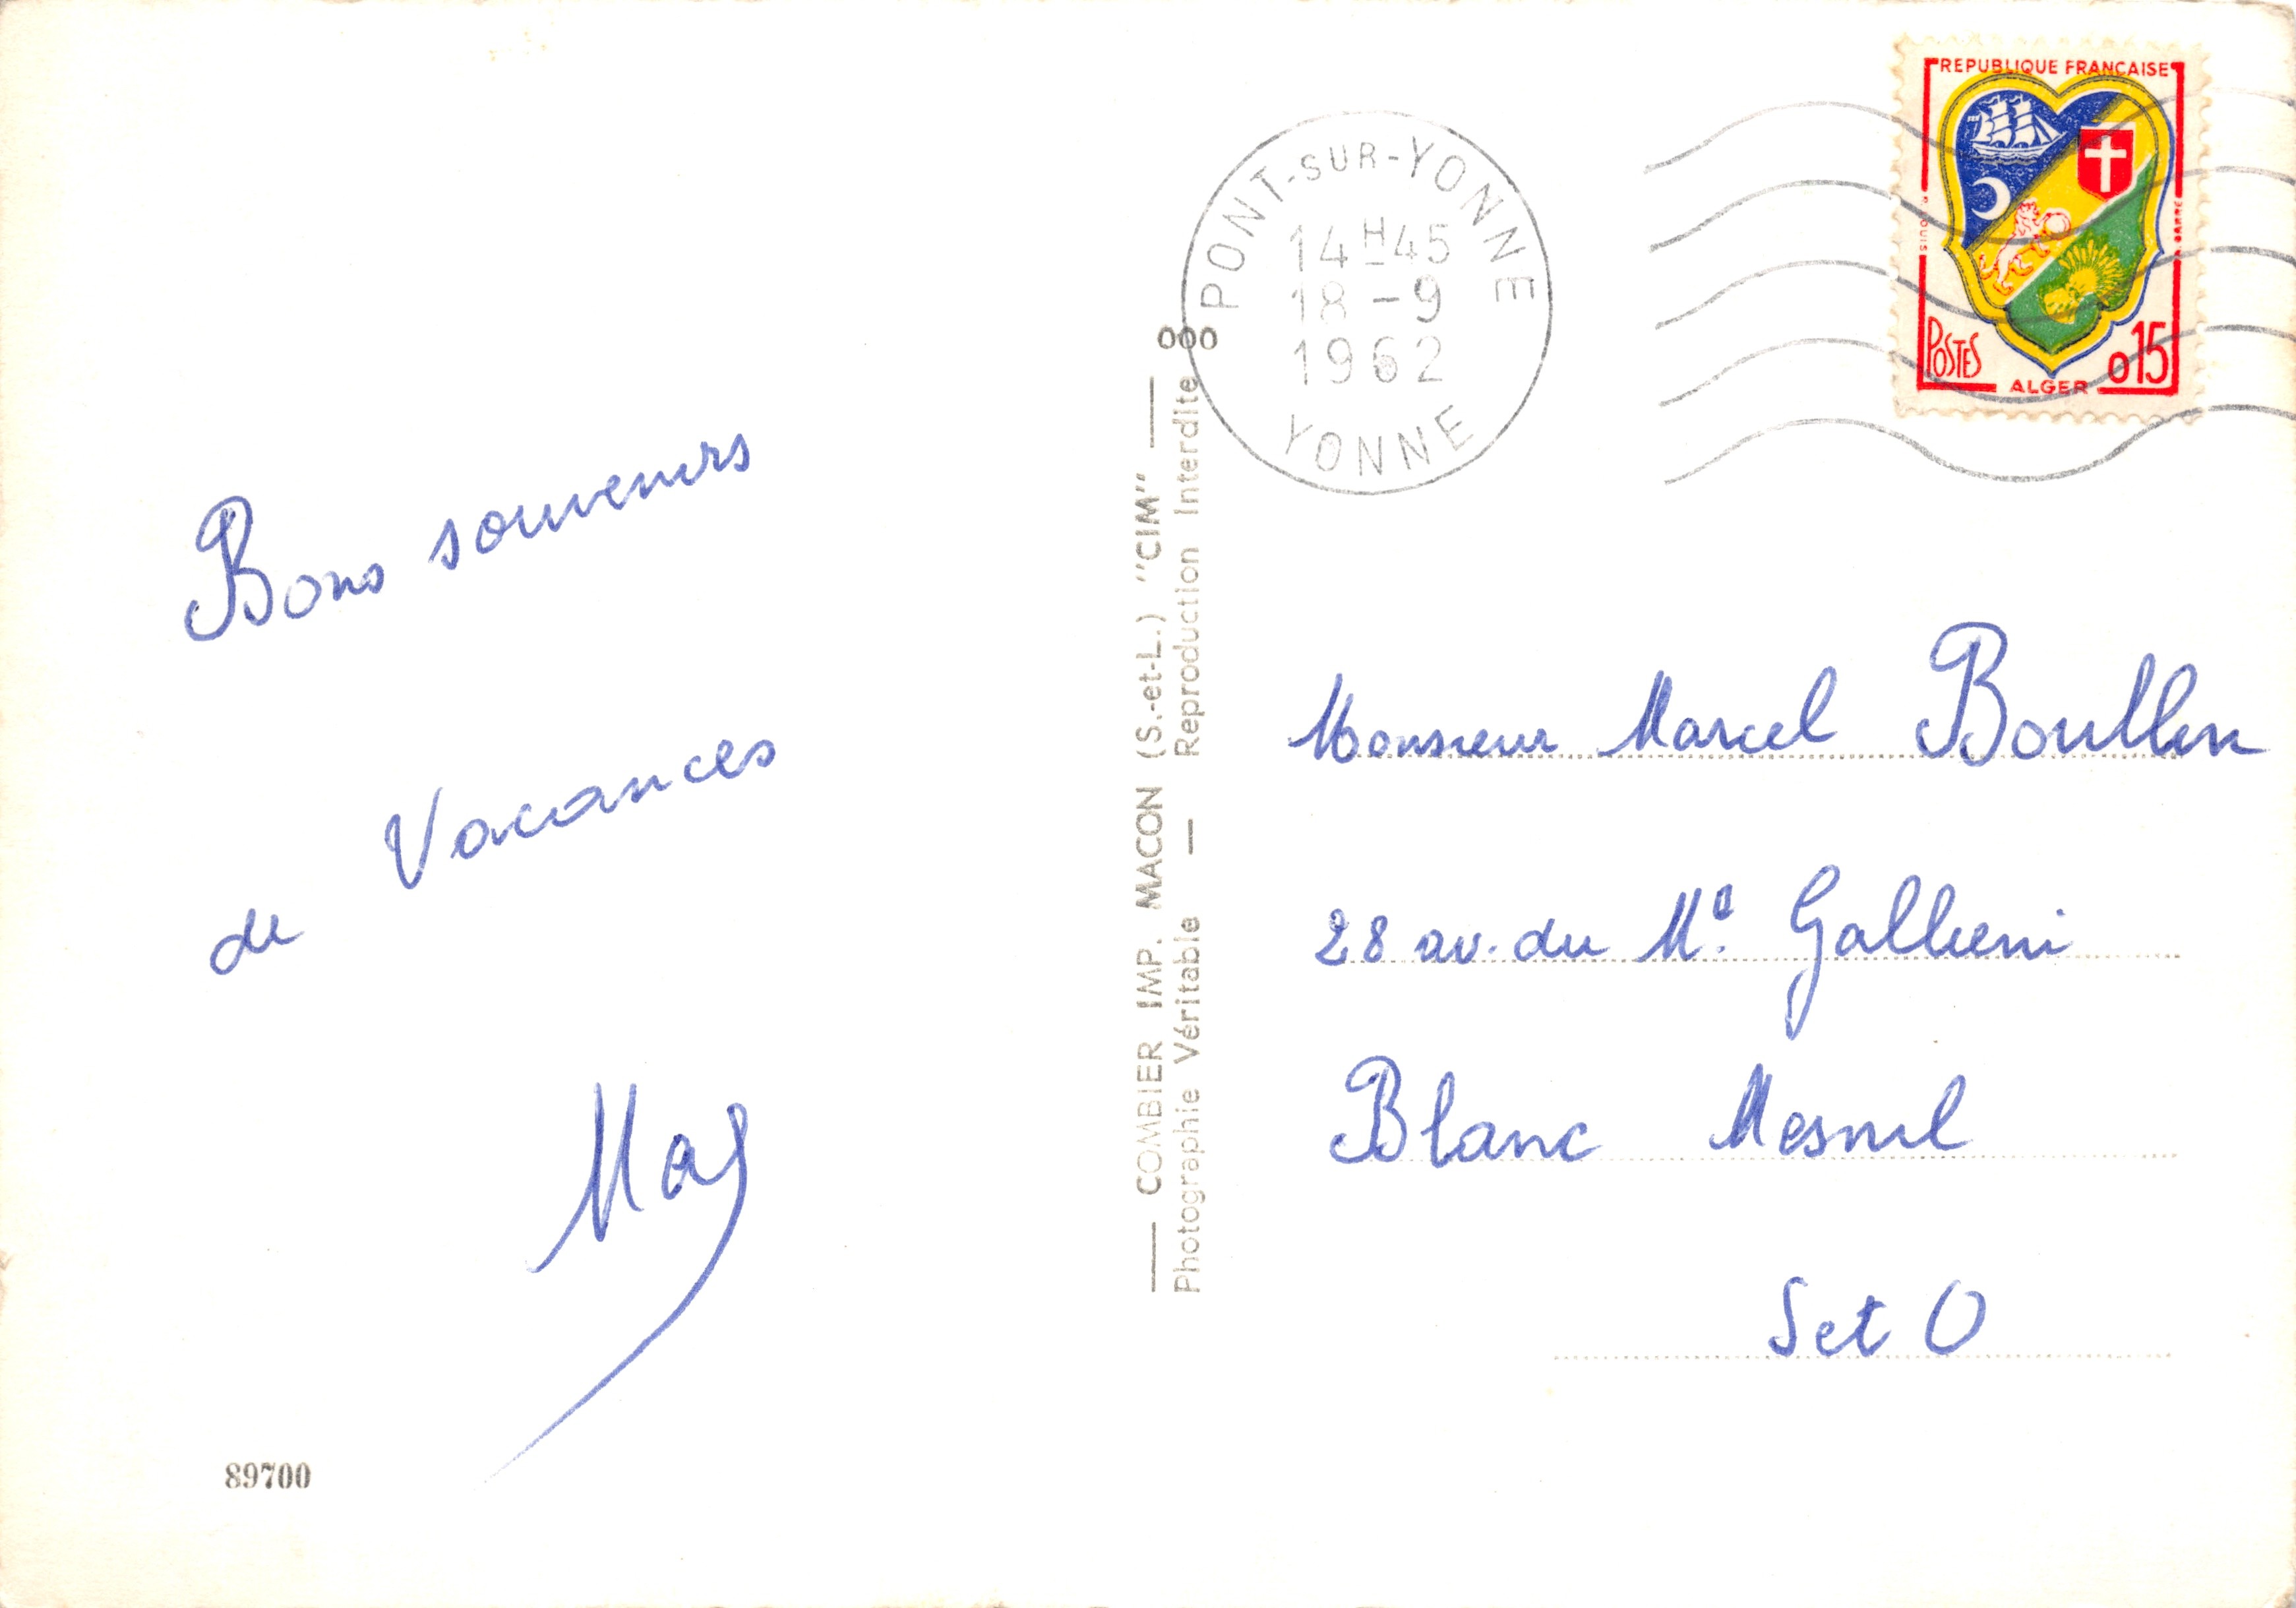 Bons souvenirs
de Vacances
89700
COMBIER IMP. MACON (S.-et-L.) "CIM"
Photographie Véritable — Reproduction Interdite
PONT-SUR-YONNE
14H45
18-9
1962
YONNE
REPUBLIQUE FRANÇAISE
POSTES
ALGER
0,15
Monsieur Marcel
28 av. du Mal Gallieni
Blanc Mesnil
S et O